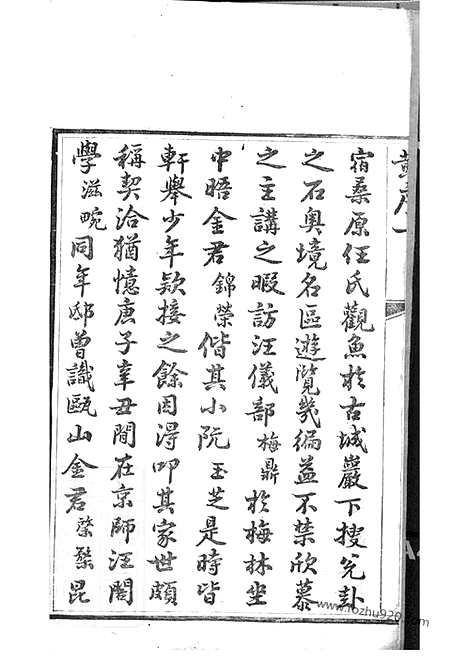 黃序一
宿桑原任氏觀魚於古城巖下搜完卦
之石奧境名區遊覽幾徧益不禁欣慕
之主講之暇訪汪儀部梅鼎於梅林坐
中晤金君錦榮偕其小阮玉芝是時皆
軒舉少年欵接之餘因得叩其家世頗
稱契洽猶憶庚子辛丑間在京師汪閣
學滋畹同年邸曾識甌山金君榮昆
www.fozhu920.com